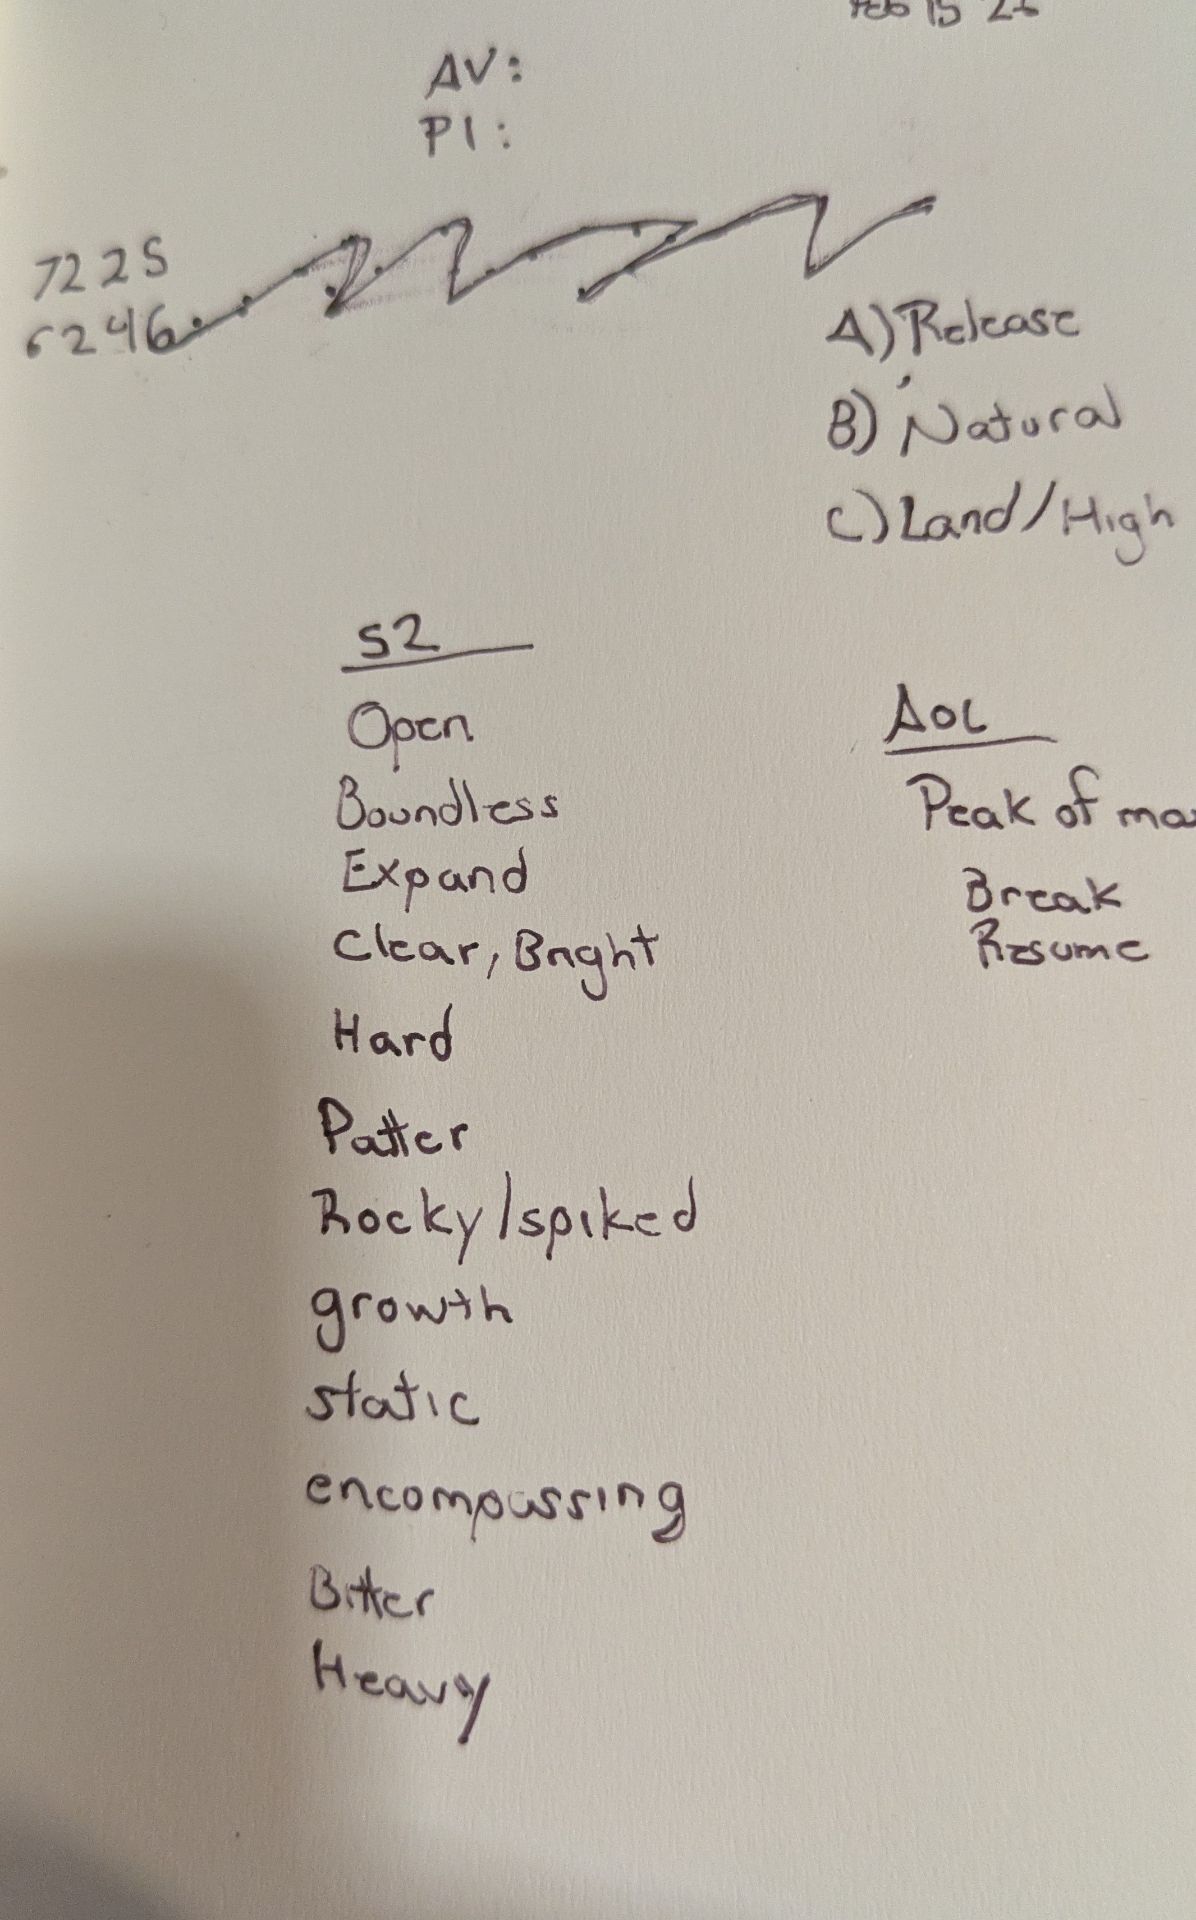 Feb 15
AV:
PI:
7225
6246
A) Release
B) Natural
C) Land/High
S2
Open
Boundless
Expand
Clear, Bright
Hard
Patter
Rocky/spiked
growth
static
encompassing
Bitter
Heavy
AOL
Peak of
Break
Resume